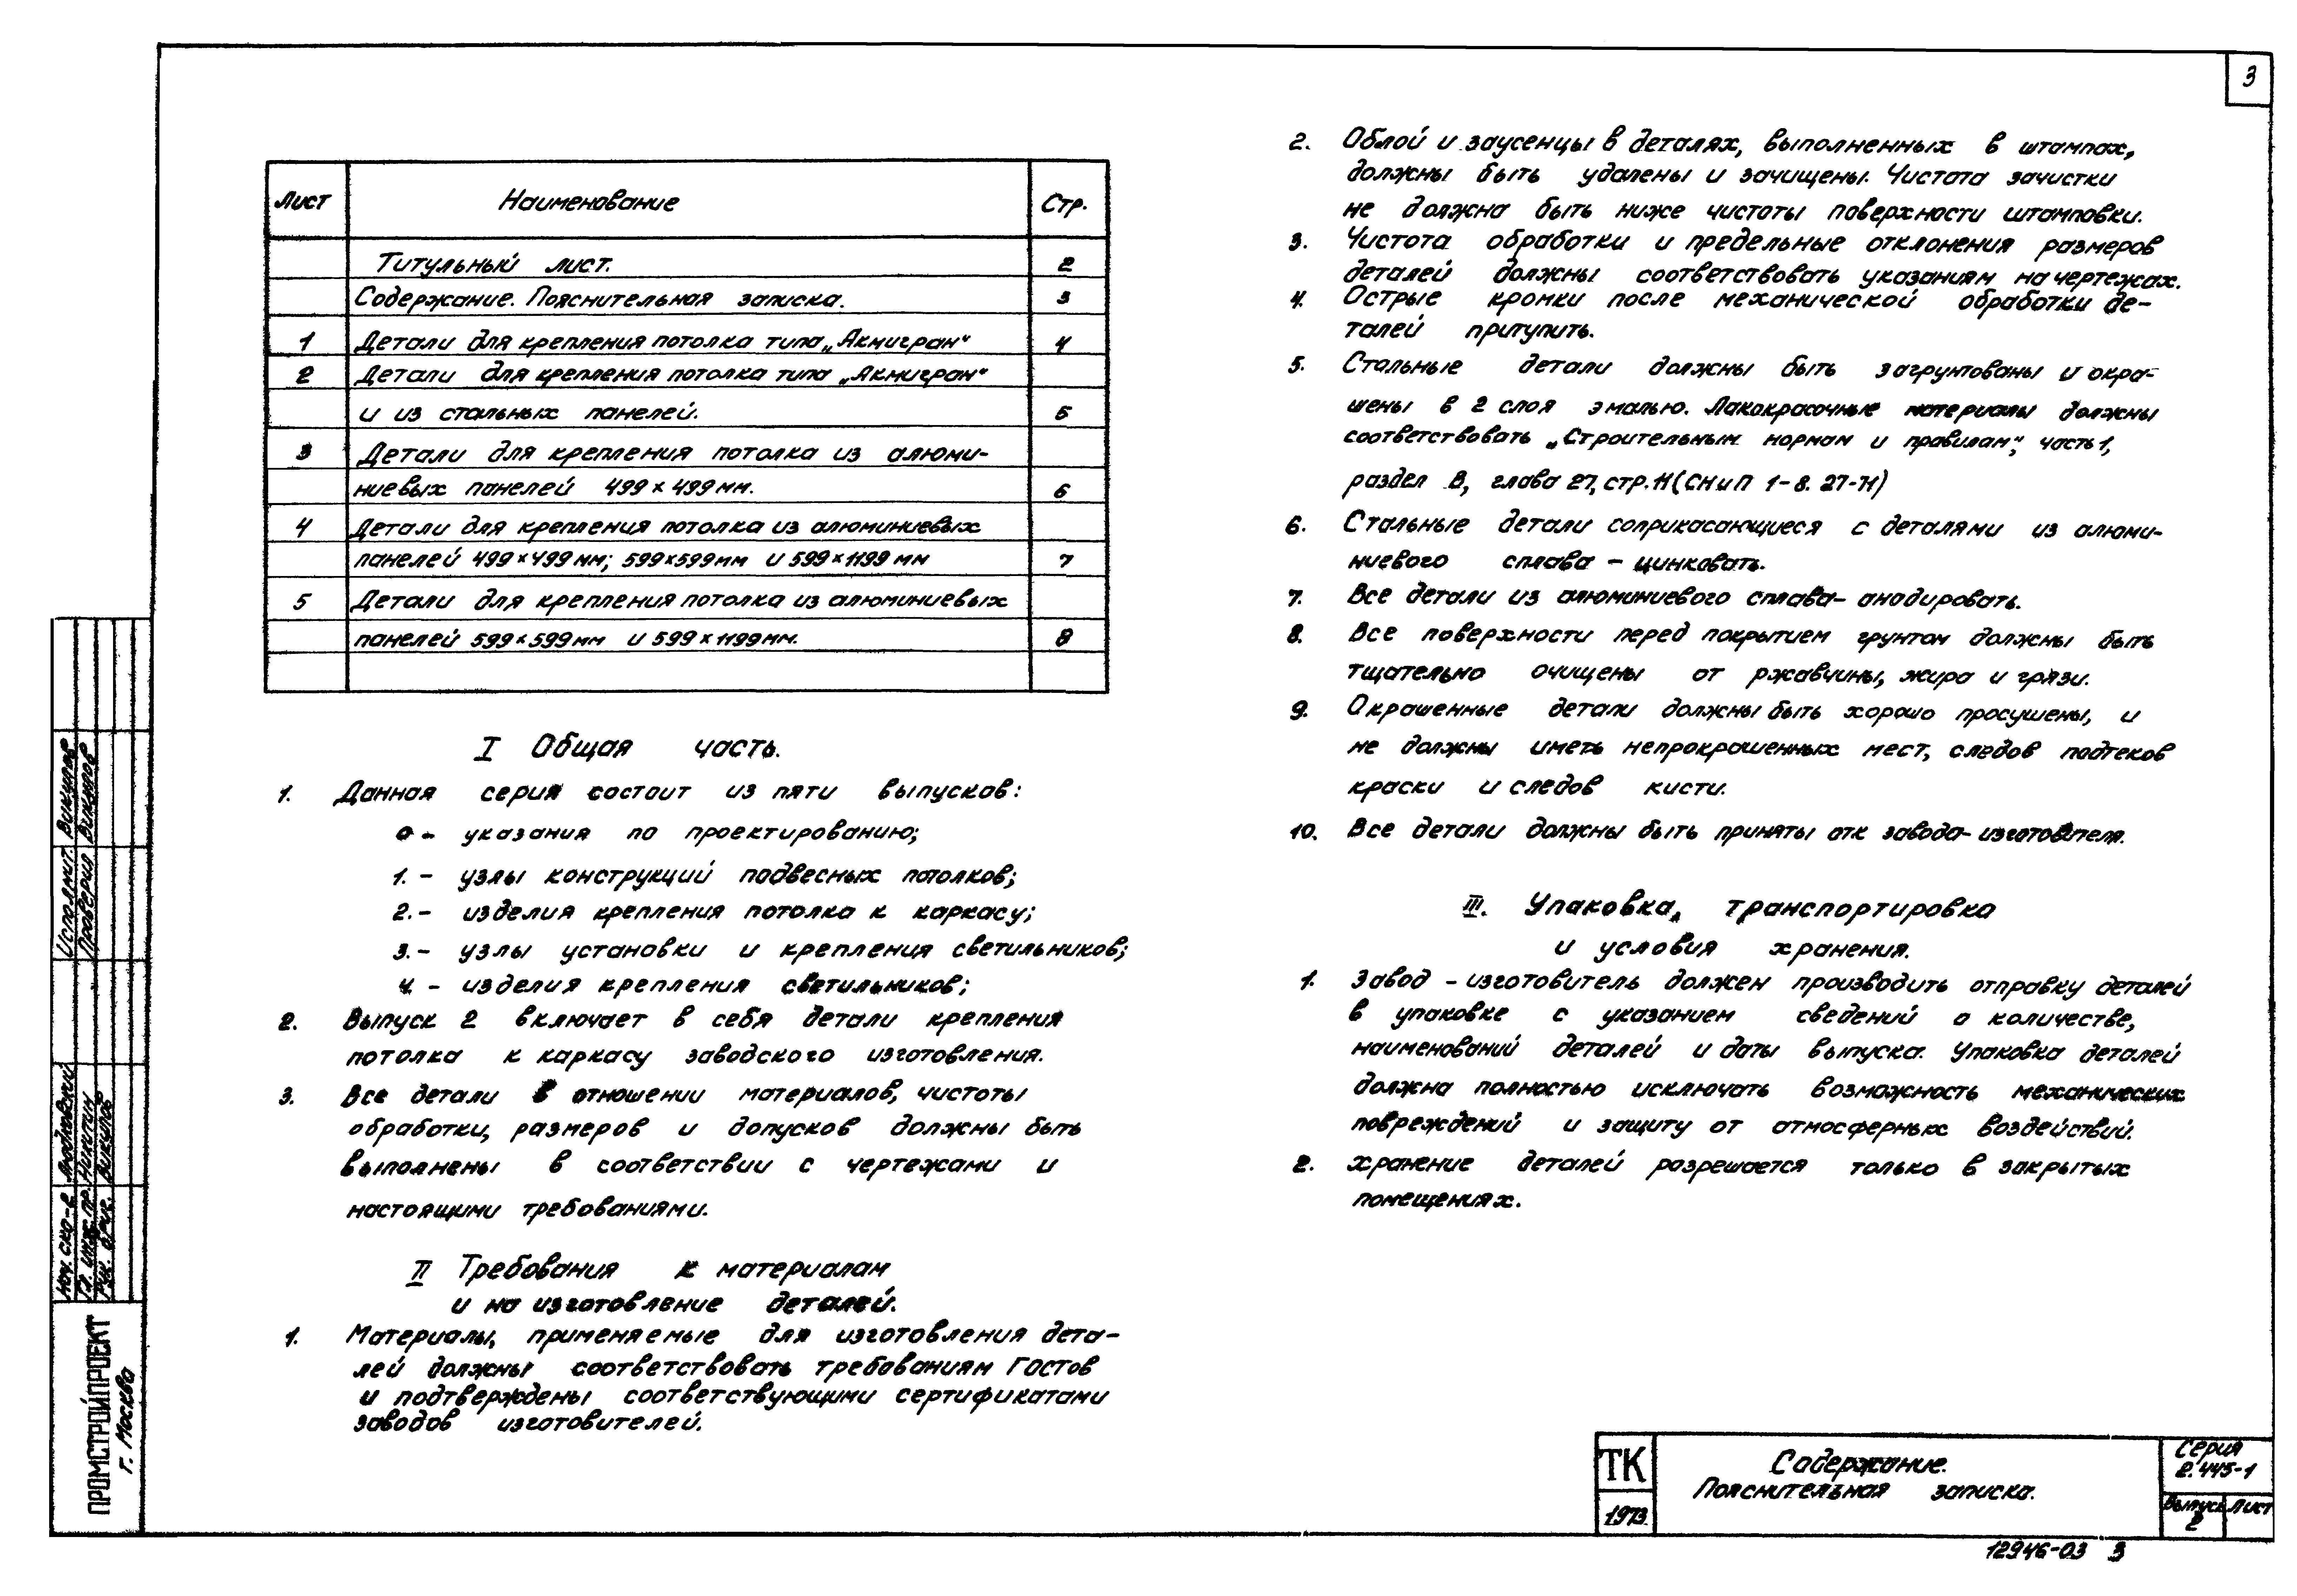 3
Лист Наименование Стр.
Титульный лист. 2
Содержание. Пояснительная записка. 3
1 Детали для крепления потолка типа „Акмигран“ 4
2 Детали для крепления потолка типа „Акмигран“
и из стальных панелей. 5
3 Детали для крепления потолка из алюми-
ниевых панелей 499×499 мм. 6
4 Детали для крепления потолка из алюминиевых
панелей 499×499 мм; 599×599 мм и 599×1199 мм 7
5 Детали для крепления потолка из алюминиевых
панелей 599×599 мм и 599×1199 мм. 8
I Общая часть.
1. Данная серия состоит из пяти выпусков:
0 - указания по проектированию;
1. - узлы конструкций подвесных потолков;
2. - изделия крепления потолка к каркасу;
3. - узлы установки и крепления светильников;
4. - изделия крепления светильников;
2. Выпуск 2 включает в себя детали крепления
потолка к каркасу заводского изготовления.
3. Все детали в отношении материалов, чистоты
обработки, размеров и допусков должны быть
выполнены в соответствии с чертежами и
настоящими требованиями.
II Требования к материалам
и на изготовление деталей.
1. Материалы, применяемые для изготовления дета-
лей должны соответствовать требованиям ГОСТов
и подтверждены соответствующими сертификатами
заводов изготовителей.
2. Облой и заусенцы в деталях, выполненных в штампах,
должны быть удалены и зачищены. Чистота зачистки
не должна быть ниже чистоты поверхности штамповки.
3. Чистота обработки и предельные отклонения размеров
деталей должны соответствовать указаниям на чертежах.
4. Острые кромки после механической обработки де-
талей притупить.
5. Стальные детали должны быть загрунтованы и окра-
шены в 2 слоя эмалью. Лакокрасочные материалы должны
соответствовать „Строительным нормам и правилам“, часть 1,
раздел В, глава 27, стр. 11 (СНиП 1-В. 27-71)
6. Стальные детали соприкасающиеся с деталями из алюми-
ниевого сплава - цинковать.
7. Все детали из алюминиевого сплава - анодировать.
8. Все поверхности перед покрытием грунтом должны быть
тщательно очищены от ржавчины, жира и грязи.
9. Окрашенные детали должны быть хорошо просушены, и
не должны иметь непрокрашенных мест, следов подтеков
краски и следов кисти.
10. Все детали должны быть приняты отк завода-изготовителя.
III. Упаковка, транспортировка
и условия хранения.
1. Завод - изготовитель должен производить отправку деталей
в упаковке с указанием сведений о количестве,
наименований деталей и даты выпуска. Упаковка деталей
должна полностью исключать возможность механических
повреждений и защиту от атмосферных воздействий.
2. Хранение деталей разрешается только в закрытых
помещениях.
Исполнит. Викулов
Проверил Викулов
Нач. СКО-2
Гл. инж. пр. Никитин
Рук. бриг. Викулов
ПРОМСТРОЙПРОЕКТ
г. Москва
ТК
1973
Содержание.
Пояснительная записка.
Серия
2.445-1
Выпуск Лист
2
12946-03 3